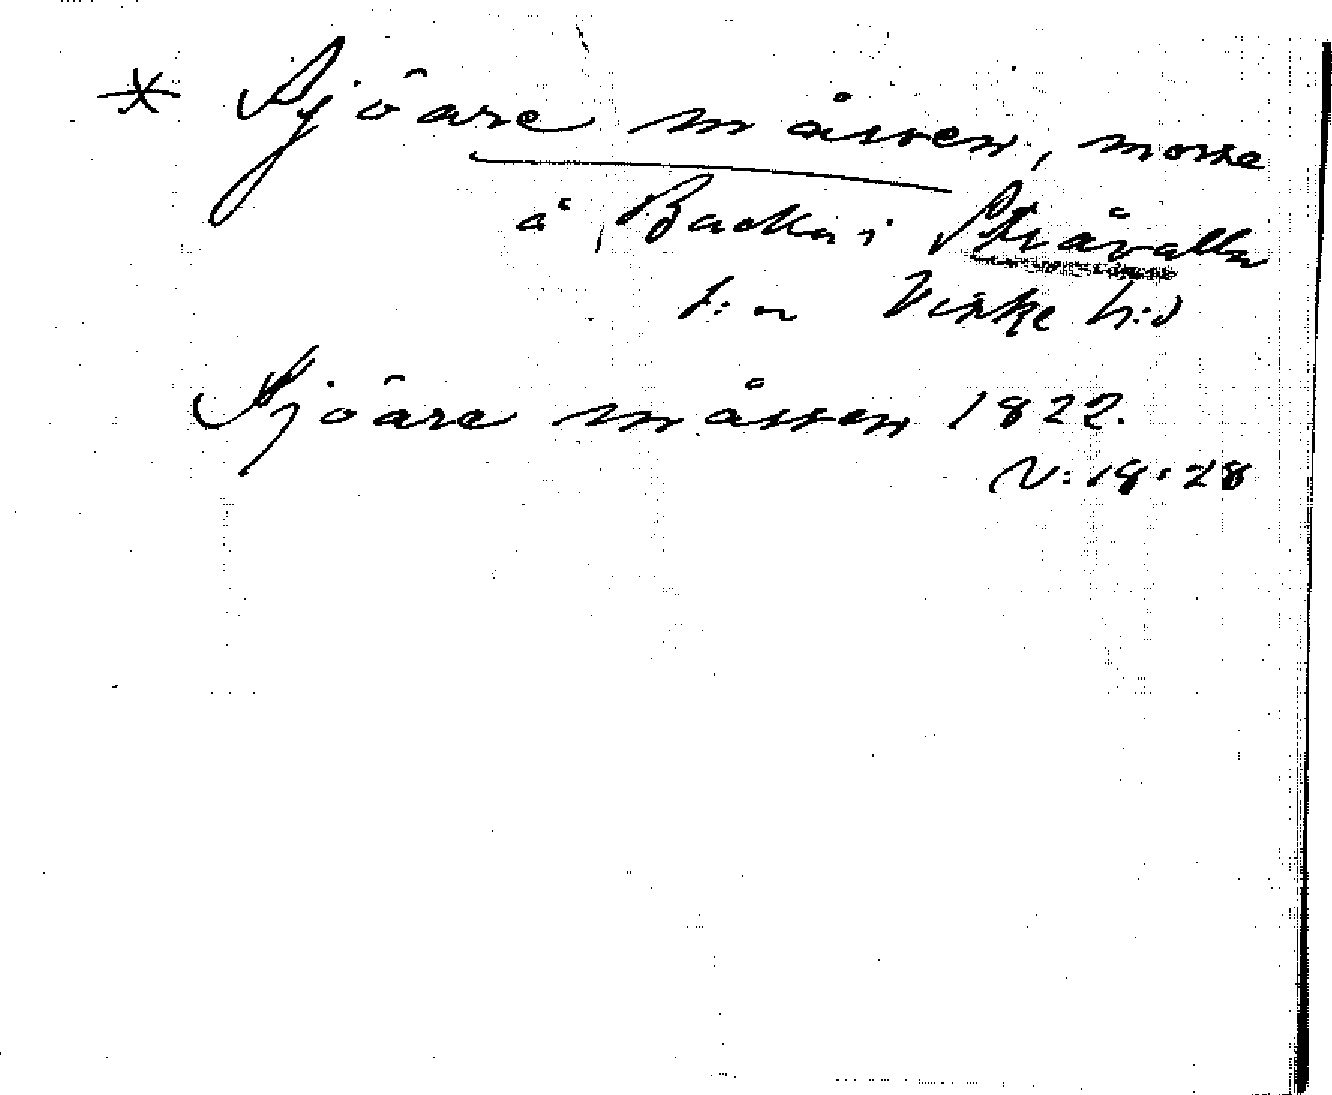 * Sjöare måssen, mosse
å Backa i Stråvalla
s:n Viske h:d
Sjöare måssen 1822.
N: 18.28